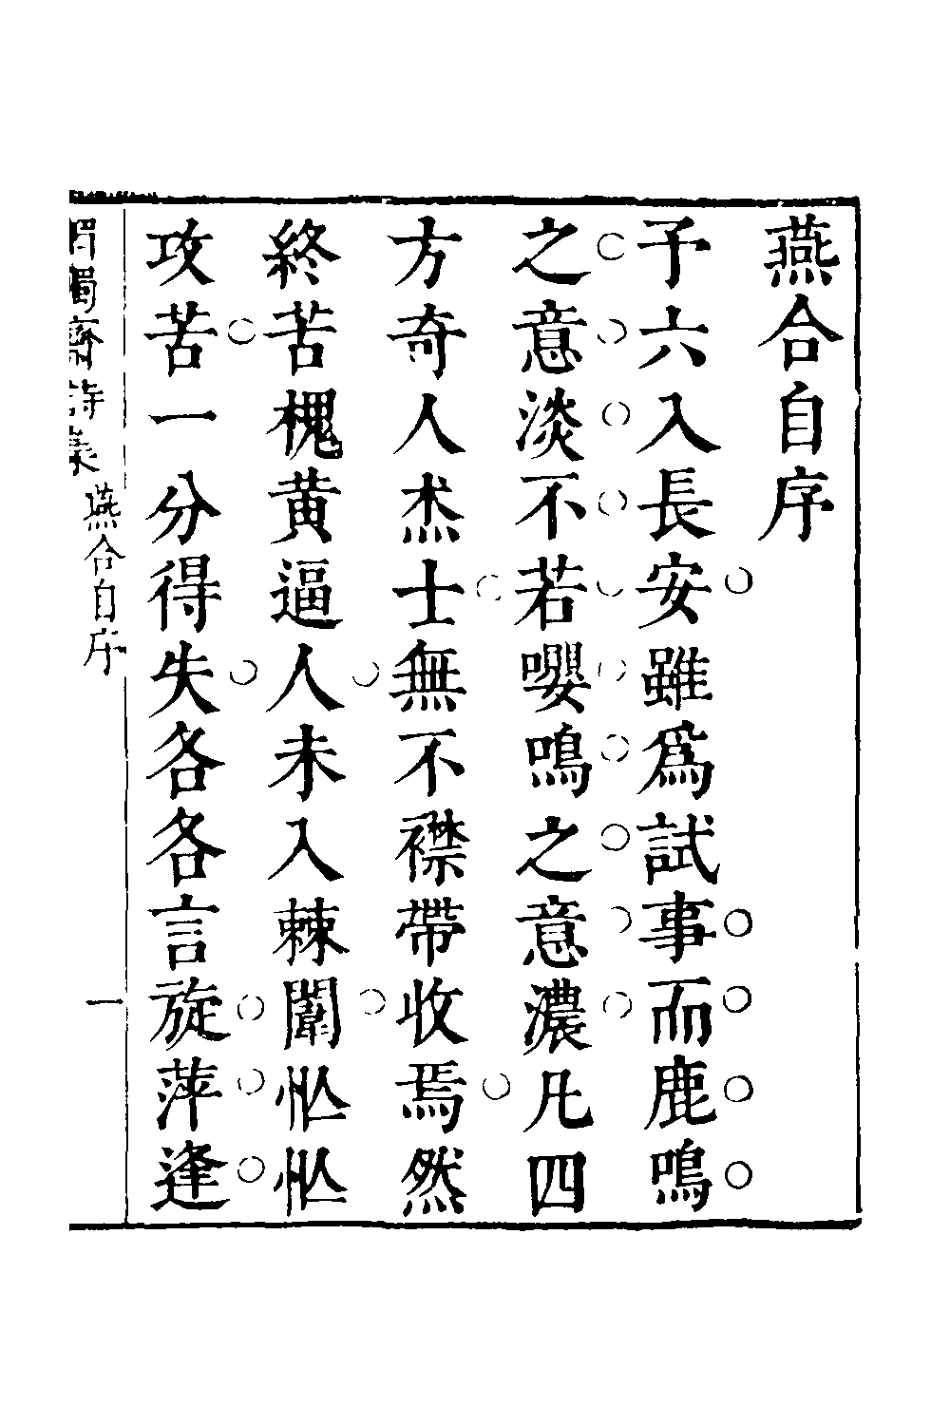 燕合自序
予六入長安雖爲試事而鹿鳴
之意淡不若嚶鳴之意濃凡四
方奇人杰士無不襟帶收焉然
終苦槐黄逼人未入棘闈忙忙
攻苦一分得失各各言旋萍逢
獨齋詩集 燕合自序 一